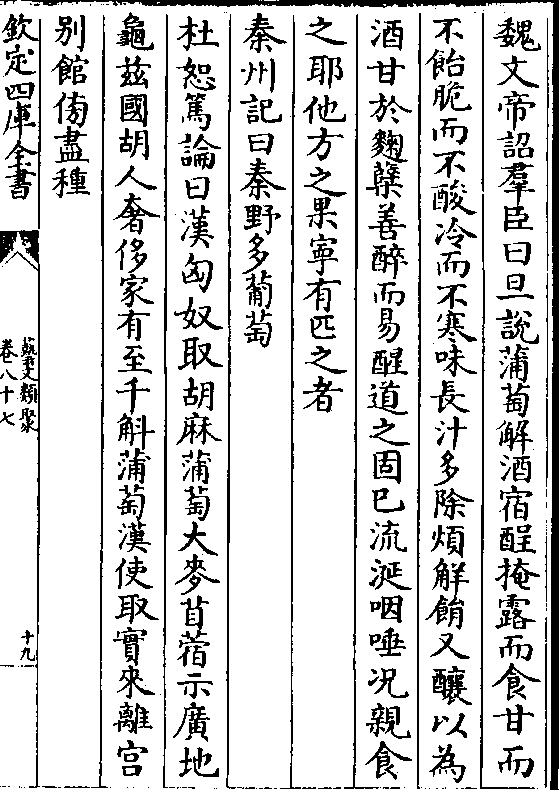 魏文帝詔羣臣曰旦說蒲萄解酒宿酲掩露而食甘而
不飴脆而不酸冷而不寒味長汁多除煩解餶又釀以為
酒甘於麴糵善醉而易醒道之固已流涎咽唾况親食
之耶他方之果寧有匹之者
秦州記曰秦野多葡萄
杜恕篤論曰漢匈奴取胡麻蒲萄大麥苜蓿示廣地
龜茲國胡人奢侈家有至千斛蒲萄漢使取實來離宮
别館傍盡種
欽定四庫全書
藝文類聚
卷八十七
十九